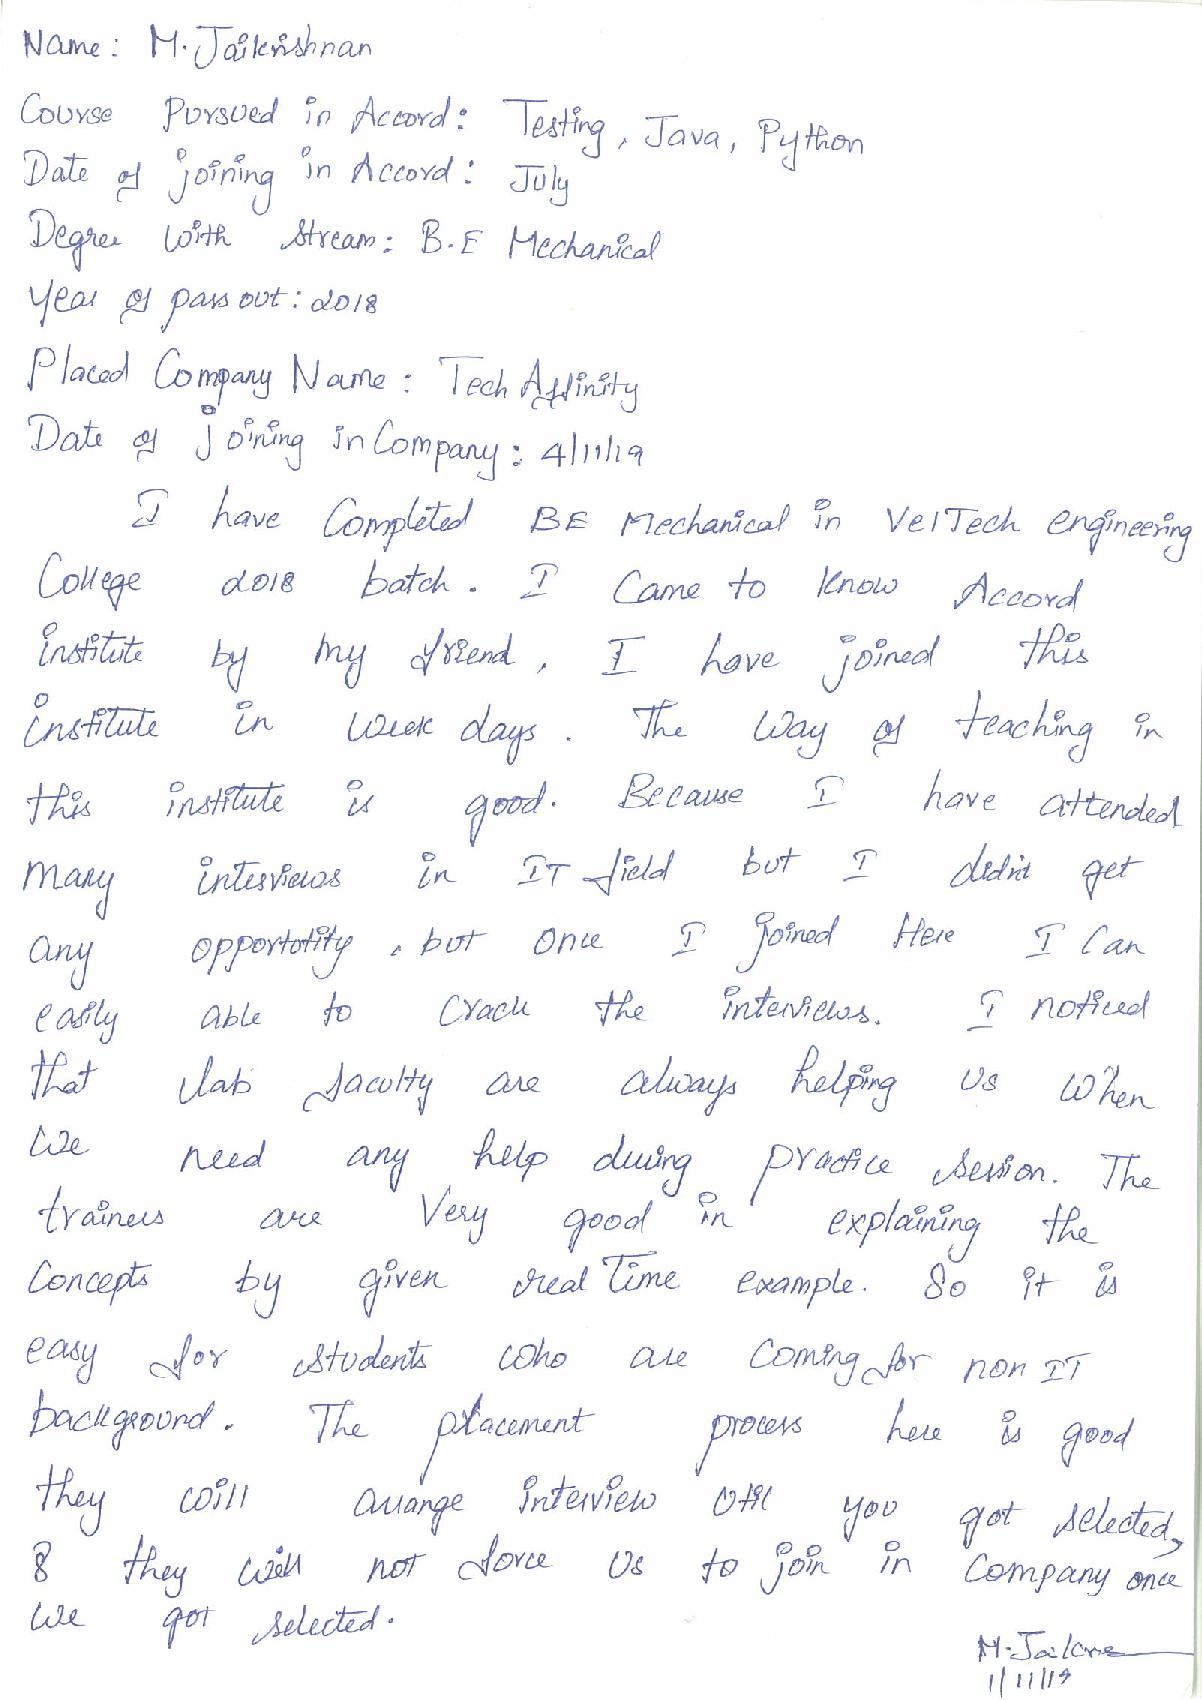 Name: M. Jaikrishnan
Course Pursued in Accord: Testing, Java, Python
Date of joining in Accord: July
Degree with Stream: B.E Mechanical
Year of pass out: 2018
Placed Company Name: Tech Affinity
Date of joining in Company: 4/11/19
I have Completed BE Mechanical in VelTech engineering
College 2018 batch. I Came to know Accord
institute by my friend, I have joined this
institute in week days. The way of teaching in
this institute is good. Because I have attended
many interviews in IT field but I didn't get
any opportotity, but once I joined Here I Can
easily able to crack the interviews. I noticed
that lab faculty are always helping us when
we need any help during practice session. The
trainers are Very good in explaining the
Concepts by given real time example. So it is
easy for students who are Coming for non IT
background. The placement process here is good
they will arrange interview util you got selected,
& they will not force us to join in Company once
we got selected.
1/11/19